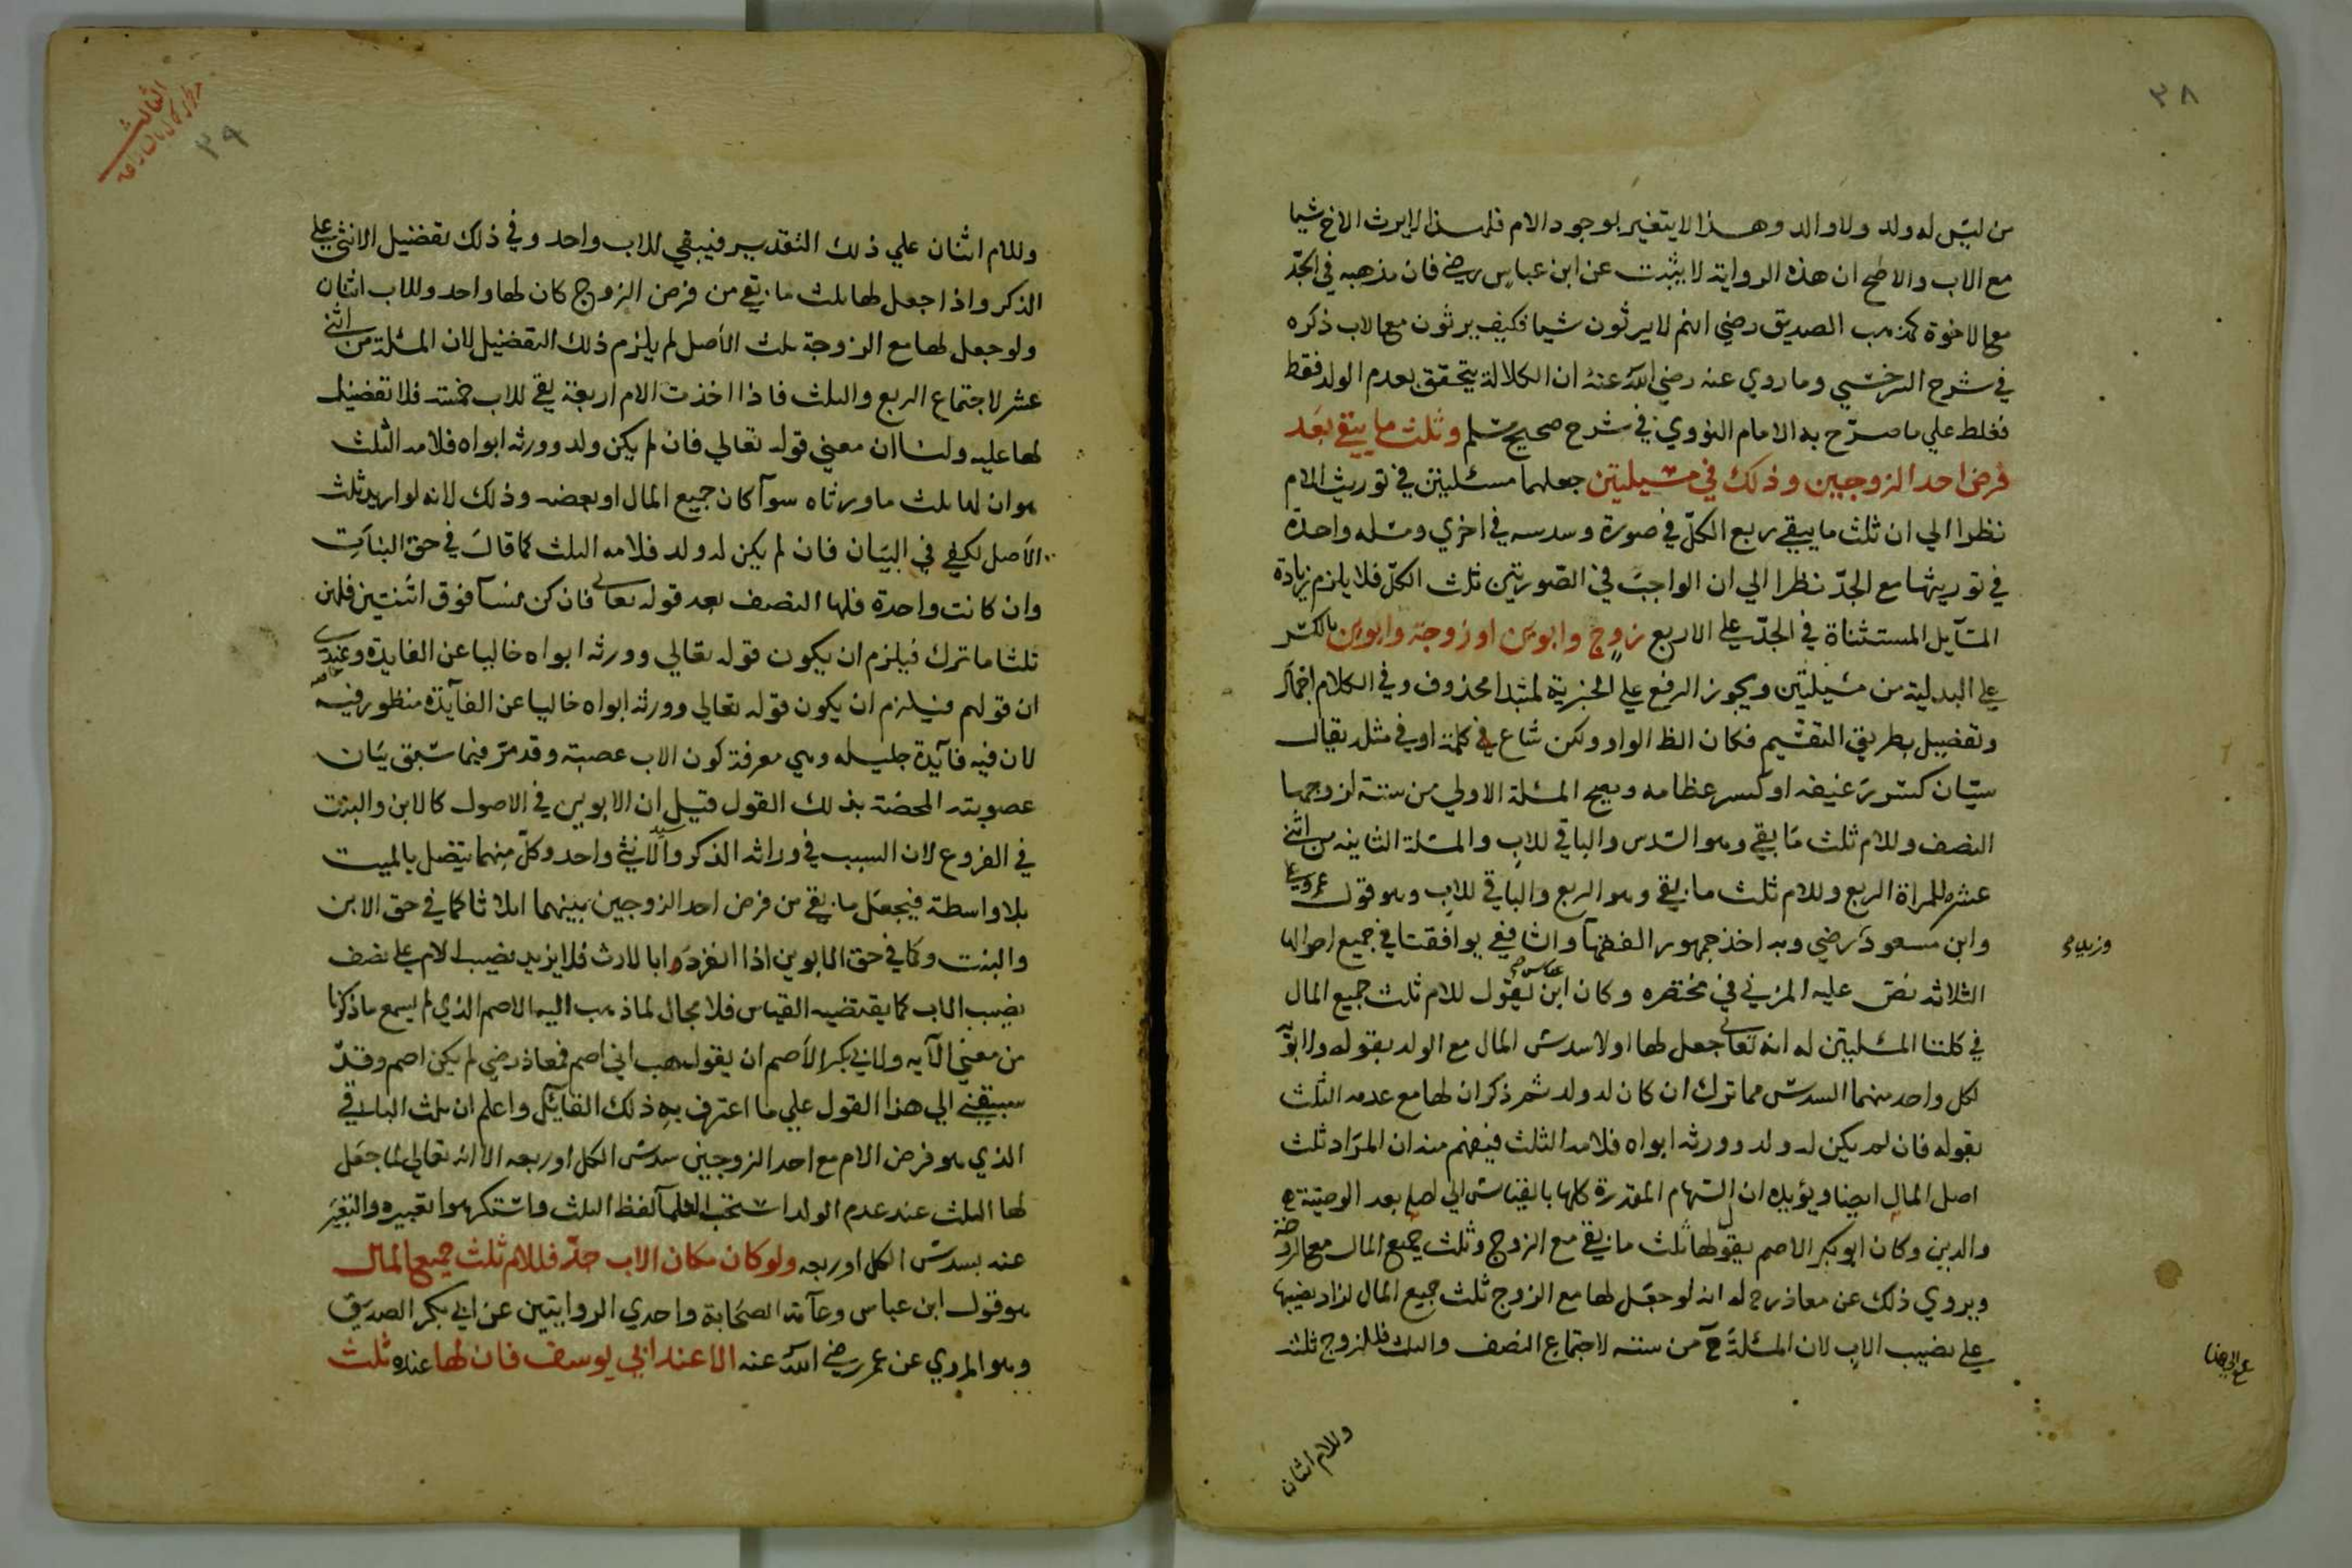 ٣٨
من ليس له ولد ولا والد وهذا لا يتغير بوجود الام فلهذا لا يرث الاخ شيا
مع الاب والاصح ان هذه الرواية لا يثبت عن ابن عباس رضي فان مذهبه في الجدّ
مع الاخوة كمذهب الصديق رضي انهم لا يرثون شيا فكيف يرثون مع الاب ذكره
في شرح السرخسي وما روي عنه رضي الله عنه ان الكلالة يتحقق بعدم الولد فقط
فغلط علي ما صرّح به الامام النووي في شرح صحيح مسلم وثلث ما يبقي بعد
فرض احد الزوجين وذلك في مسيلتين جعلهما مسئلتين في توريث الام
نظرا الي ان ثلث ما يبقي ربع الكلّ في صورة وسدسه في اخري ومسله واحدة
في توريثها مع الجدّ نظرا الي ان الواجب في الصورتين ثلث الكلّ فلا يلزم زيادة
المسآيل المستثناة في الجدّ علي الاربع زوج وابوين او زوجة وابوين بالكسر
علي البدلية من مسيلتين ويجوز الرفع علي الخبرية لمبتدا محذوف وفي الكلام اجمال
وتفصيل بطريق التقسيم فكان الظ الواو ولكن شاع في كلمة او في مثله يقال
سيّان كسر رغيفه او كسر عظامه وتصح المسئلة الاولي من ستة لزوجها
النصف وللام ثلث ما بقي وهو السدس والباقي للاب والمسئلة الثانية من اثني
عشر للمراة الربع وللام ثلث ما بقي وهو الربع والباقي للاب وهو قول عمر وعلي
وابن مسعود رضي وبه اخذ جمهور الفقهآ والشافعي يوافقنا في جميع احوالها
وزيد
الثلاثه نصّ عليه المزني في مختصره وكان ابن عباس رضي يقول للام ثلث جميع المال
في كلتا المسئلتين له انه تعالي جعل لها اولا سدس المال مع الولد بقوله ولابويه
لكل واحد منهما السدس مما ترك ان كان له ولد ثم ذكر ان لها مع عدمه الثلث
بقوله فان لم يكن له ولد وورثه ابواه فلامه الثلث فيفهم منه ان المراد ثلث
اصل المال ايضا ويؤيده ان السهام المقدرة كلها بالقياس الي اصله بعد الوصيّة
والدين وكان ابو بكر الاصم يقول لها ثلث ما بقي مع الزوج وثلث جميع المال مع الزوجة
ويروي ذلك عن معاذ رح له انه لو جعل لها مع الزوج ثلث جميع المال لزاد نصيبها
علي نصيب الاب لان المسئلة ح من ستة لاجتماع النصف والثلث فللزوج ثلثه
وللام اثنان
الثالث
٣٩
وللام اثنان علي ذلك التقدير فيبقي للاب واحد وفي ذلك تفضيل الانثي علي
الذكر واذا جعل لها ثلث ما بقي من فرض الزوج كان لها واحد وللاب اثنان
ولو جعل لها مع الزوجة ثلث الأصل لم يلزم ذلك التفضيل لان المسئلة من اثني
عشر لاجتماع الربع والثلث فاذا اخذت الام اربعة بقي للاب خمسة فلا تفضيل
لها عليه ولنا ان معني قوله تعالي فان لم يكن ولد وورثه ابواه فلامه الثلث
هو ان لها ثلث ما ورثاه سوآ كان جميع المال او بعضه وذلك لانه لو اريد ثلث
الأصل لكفي في البيان فان لم يكن له ولد فلامه الثلث كما قال في حق البنات
وان كانت واحدة فلها النصف بعد قوله تعالي فان كن نسآ فوق اثنتين فلهن
ثلثا ما ترك فيلزم ان يكون قوله تعالي وورثه ابواه خاليا عن الفايدة وعندي
ان قولهم فيلزم ان يكون قوله تعالي وورثه ابواه خاليا عن الفآيدة منظور فيه
لان فيه فآيدة جليله وهي معرفة كون الاب عصبة وقد مرّ فيما سبق بيان
عصوبته المحضة بذلك القول قيل ان الابوين في الاصول كالابن والبنت
في الفروع لان السبب في وراثه الذكر والانثي واحد وكلّ منهما يتصل بالميت
بلا واسطة فيجعل ما بقي من فرض احد الزوجين بينهما اثلاثا كما في حق الابن
والبنت وكما في حق الابوين اذا انفردا بالارث فلا يزيد نصيب الام علي نصف
نصيب الاب كما يقتضيه القياس فلا مجال لما ذهب اليه الاصم الذي لم يسمع ما ذكرنا
من معني الآيه ولابي بكر الأصم ان يقول هب اني اصم فمعاذ رضي لم يكن اصم وقد
سبقني الي هذا القول علي ما اعترف به ذلك القآئل واعلم ان ثلث الباقي
الذي هو فرض الام مع احد الزوجين سدس الكل او ربعه الا انه تعالي لما جعل
لها الثلث عند عدم الولد استحب العلمآ لفظ الثلث واستكرهوا تعبيره والتغير
عنه بسدس الكل او ربعه ولو كان مكان الاب جدّ فللام ثلث جميع المال
هو قول ابن عباس وعآمة الصحابة واحدي الروايتين عن ابي بكر الصديق
وهو المروي عن عمر رضي الله عنه الا عند ابي يوسف فان لها عنده ثلث